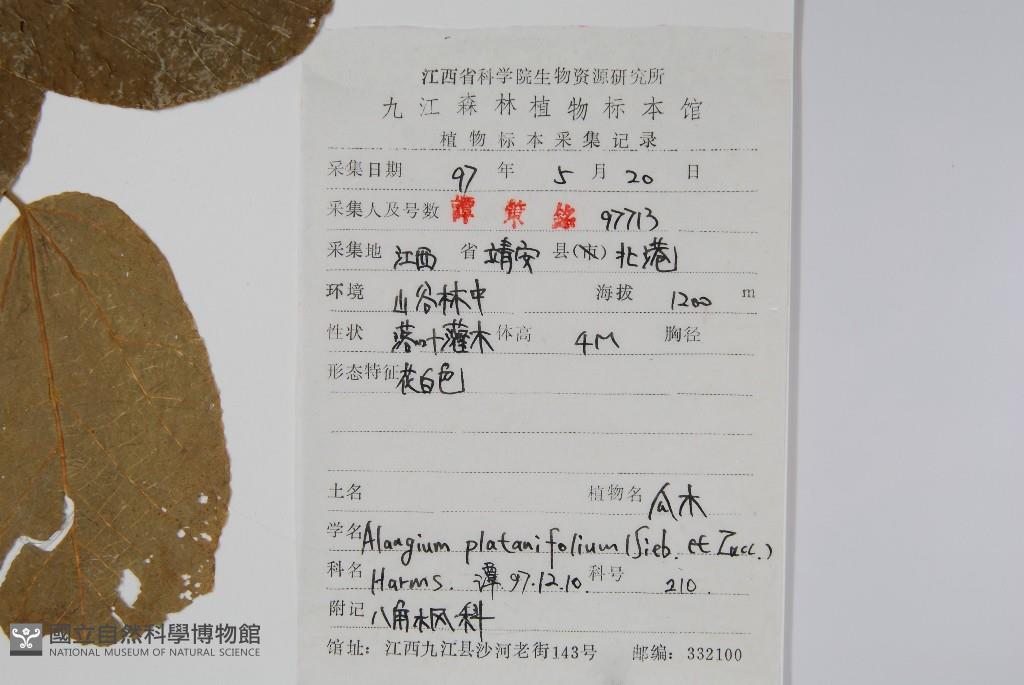 江西省科学院生物资源研究所
九江森林植物标本馆
植物标本采集记录
采集日期 97 年 5 月 20 日
采集人及号数 譚策銘 97713
采集地 江西 省 靖安 县(市) 北港
环境 山谷林中 海拔 1200 m
性状 落叶灌木 体高 4M 胸径
形态特征 花白色
土名 植物名 瓜木
学名 Alangium platanifolium (Sieb. et Zucc.)
科名 Harms. 潭 97.12.10. 科号 210.
附记 八角枫科
馆址：江西九江县沙河老街143号 邮编：332100
國立自然科學博物館
NATIONAL MUSEUM OF NATURAL SCIENCE